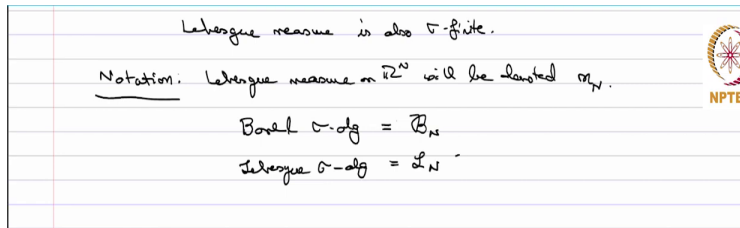 Lebesgue measure is also σ-finite.
Notation: Lebesgue measure on ℝᴺ will be denoted m_N.
Borel σ-alg = 𝓑_N
Lebesgue σ-alg = 𝓛_N
NPTE